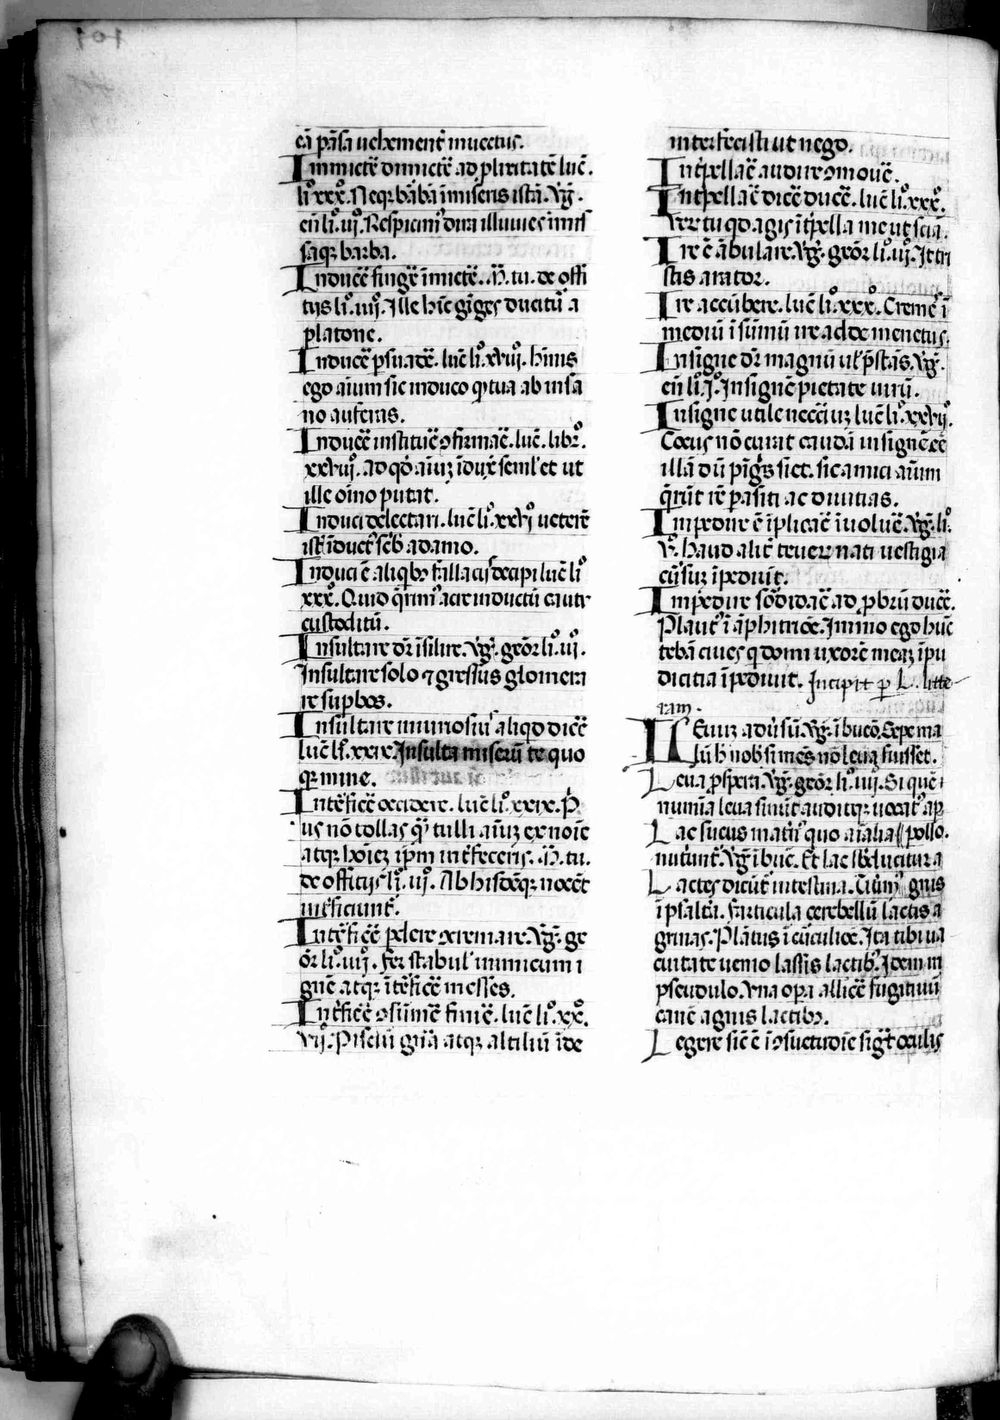 eā p̄ā sā uehement̄ inuectus.
Inmictē dimictē ad pliritatē lucē.
li.º xxx.º Neqꝫ bābā īmiseris istā. Vḡ.
eñ li.º iij.º Respicim̄ dira illuuies īmis
saqꝫ barba.
Inducē fingē īmictē. M̄. tu. de offi
tijs li.º iij.º Ille hīc giges ducitū a
platone.
Inducē psuadē. lucē li.º xxvij.º hīnus
ego aīum sic induco qͥ tua ab insa
no auferas.
Inducē instituē ɔfirmaē. lucē. libº.
xxvij.º ad qđ aīuꝫ īdux̄ semł et ut
ille oīno putat.
Induci delectari. lucē li.º xxvi.º ueterē
istī īduct̄ sc̄b adamo.
Induci ē aliqͥbꝫ fallacijs decipi lucē li.º
xxx.º Quid q̄rim̄ acie inductū caute
custoditū.
Insultare dr̄ īsilire. Vḡ. georꝫ li.º iij.º
Insultare solo ⁊ gressus glomera
re supbos.
Insultare iniuriosiu aliqd dicē
lucē li. xxix. Insulta miserū te quo
qꝫ mine.
Int̄ficē occidere. lucē li.º xxix. P̄
us nō tollas qͣ tulli aīuꝫ ex noīe
atqꝫ hōieꝫ ip̄m int̄feceris. M̄. tu.
de officijs li.º iij.º Ab hisdēqꝫ nocēt
int̄ficiunt̄.
Int̄ficē pdere cremare. Vḡ. ge
orꝫ li.º iiij.º Fer stabul' inimicum i
gnē atqꝫ īt̄ficē messes.
Int̄ficē ɔsumē finiē. lucē li.º xx.º
vij.º Pisciū gn̄a atqꝫ altiliū īde
interfecisti ut nego.
Int̄pellaē audire ɔmouē.
Int̄pellaē dicē ducē. lucē li.º xxx.º
Vere tu qd agis īt̄pella me ut sciā.
Ire ē ābulare. Vḡ. georꝫ li.º iij.º It tri
stis arator.
Ire accūbere. lucē li.º xxx.º Creme ī
mediū ī sūmū ire ad demenetus.
Insigne dr̄ magnū ut p̄stās. Vḡ.
eñ li.º i.º Insignē pietate uirū.
Insigne utile neccīuꝫ lucē li.º xxvij.º
Cocus nō curat caudā insignē eē
illā dū pīgs siet. sic amici aīum
q̄rūt rē pasiti ac diuitias.
Impedire ē īplicaē īuoluē. Vḡ. li.º
v.º haud alit̄ teucrꝫ nati uestigia
cursuꝫ īpediūt.
Impedire sordidaē ad pbrū ducē.
Plaut̄ ī āphitrioē. Immo ego hūc
tebāi ciues q domi uxorē meaꝫ īpu
dicitia īpediuit. Incipit p̄ L. litte-
ram.
LEuuꝫ aduersū. Vḡ. ī bucō. Sepe ma
lū h̄ nob̄ si mēs nō leua fuisset.
Leua pspera. Vḡ. georꝫ li.º iiij.º Si quē i
numina leua sinūt auditqꝫ uocat' ap
Lac sucus matū quo aīalia ⸗ pollo.
nutriunt̄. Vḡ ī buc̄. Et lac subducitur a
Lactes dicūt̄ intestina. gnis
ī psaltā. Farticula cerebellū lactis a
gninas. Plautus ī curculiōe. Ita tibi ua
cuitate uenio lassis lactibꝫ. Idem in
pseudulo. Vna opa allicē fugitiuū
canē agnis lactibꝫ.
Legere sic ē ī ɔsuetudīe sigt̄ oculis